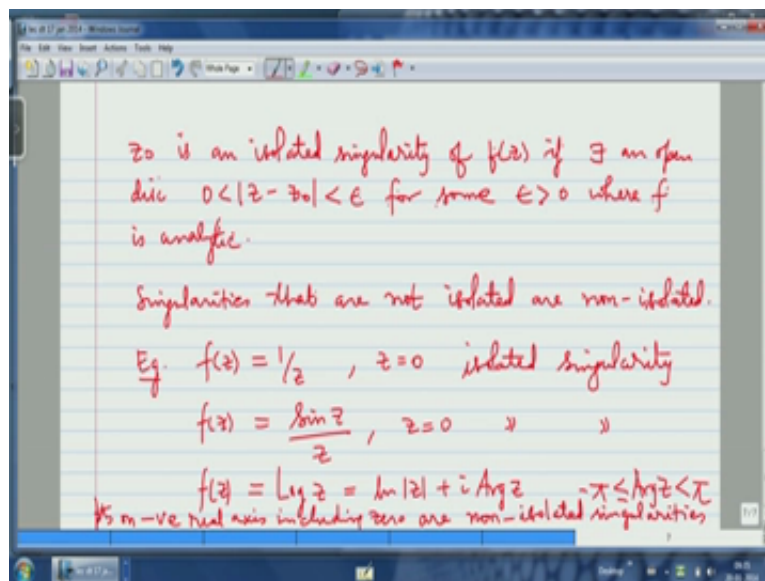 lec dt 17 jan 2014 - Windows Journal
File Edit View Insert Actions Tools Help
Whole Page
z0 is an isolated singularity of f(z) if ∃ an open
disc 0<|z-z0|<ε for some ε>0 where f
is analytic.
Singularities that are not isolated are non-isolated.
Eg. f(z) = 1/z , z=0 isolated singularity
f(z) = Sin z / z , z=0 " "
f(z) = Log z = ln|z| + i Arg z -π≤Argz<π
pts on -ve real axis including zero are non-isolated singularities
7/7
7
Desktop